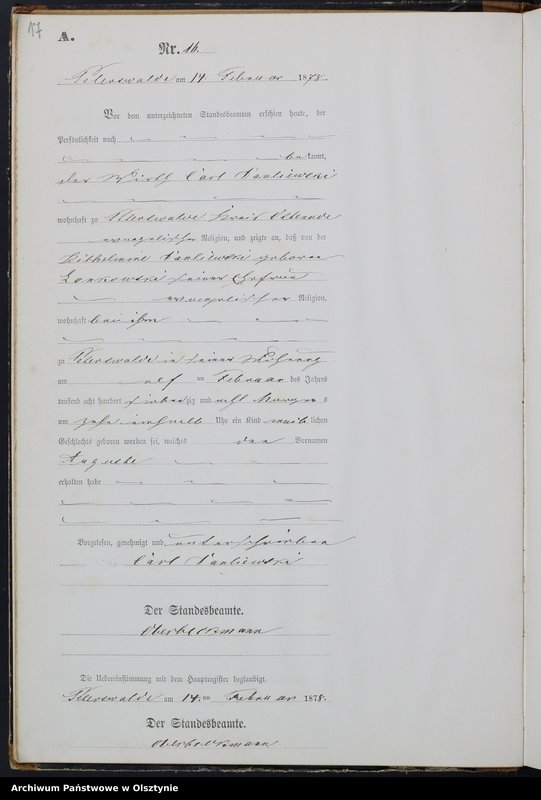 17
A.
Nr. 16.
Peterswalde am 14. Februar 1878.
Vor dem unterzeichneten Standesbeamten erschien heute, der
Persönlichkeit nach
bekannt,
der Wirth Carl
wohnhaft zu Peterswalde Kreis Osterode
evangelischer Religion, und zeigte an, daß von der
Wilhelmine geborene
seiner Ehefrau
evangelischer Religion,
wohnhaft bei ihm
zu Peterswalde in seiner Wohnung
am elf ten Februar des Jahres
tausend acht hundert siebenzig und acht Morgens
um zehn einhalb Uhr ein Kind weiblichen
Geschlechts geboren worden sei, welches den Vornamen
Auguste
erhalten habe
Vorgelesen, genehmigt und unterschrieben
Carl
Der Standesbeamte.
Die Uebereinstimmung mit dem Hauptregister beglaubigt.
Peterswalde am 14. ten Februar 1878.
Der Standesbeamte.
Archiwum Państwowe w Olsztynie